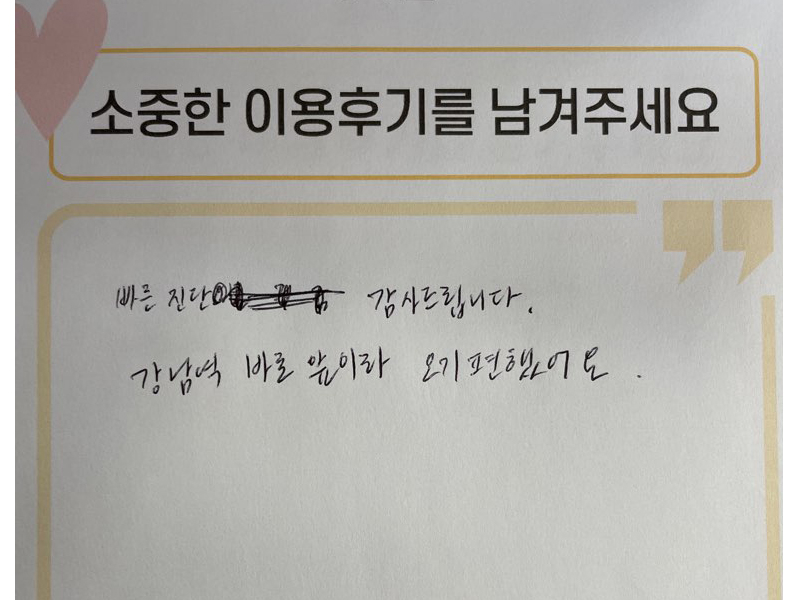 소중한 이용후기를 남겨주세요
빠른 진단 감사드립니다.
강남역 바로 앞이라 오기 편했어요.